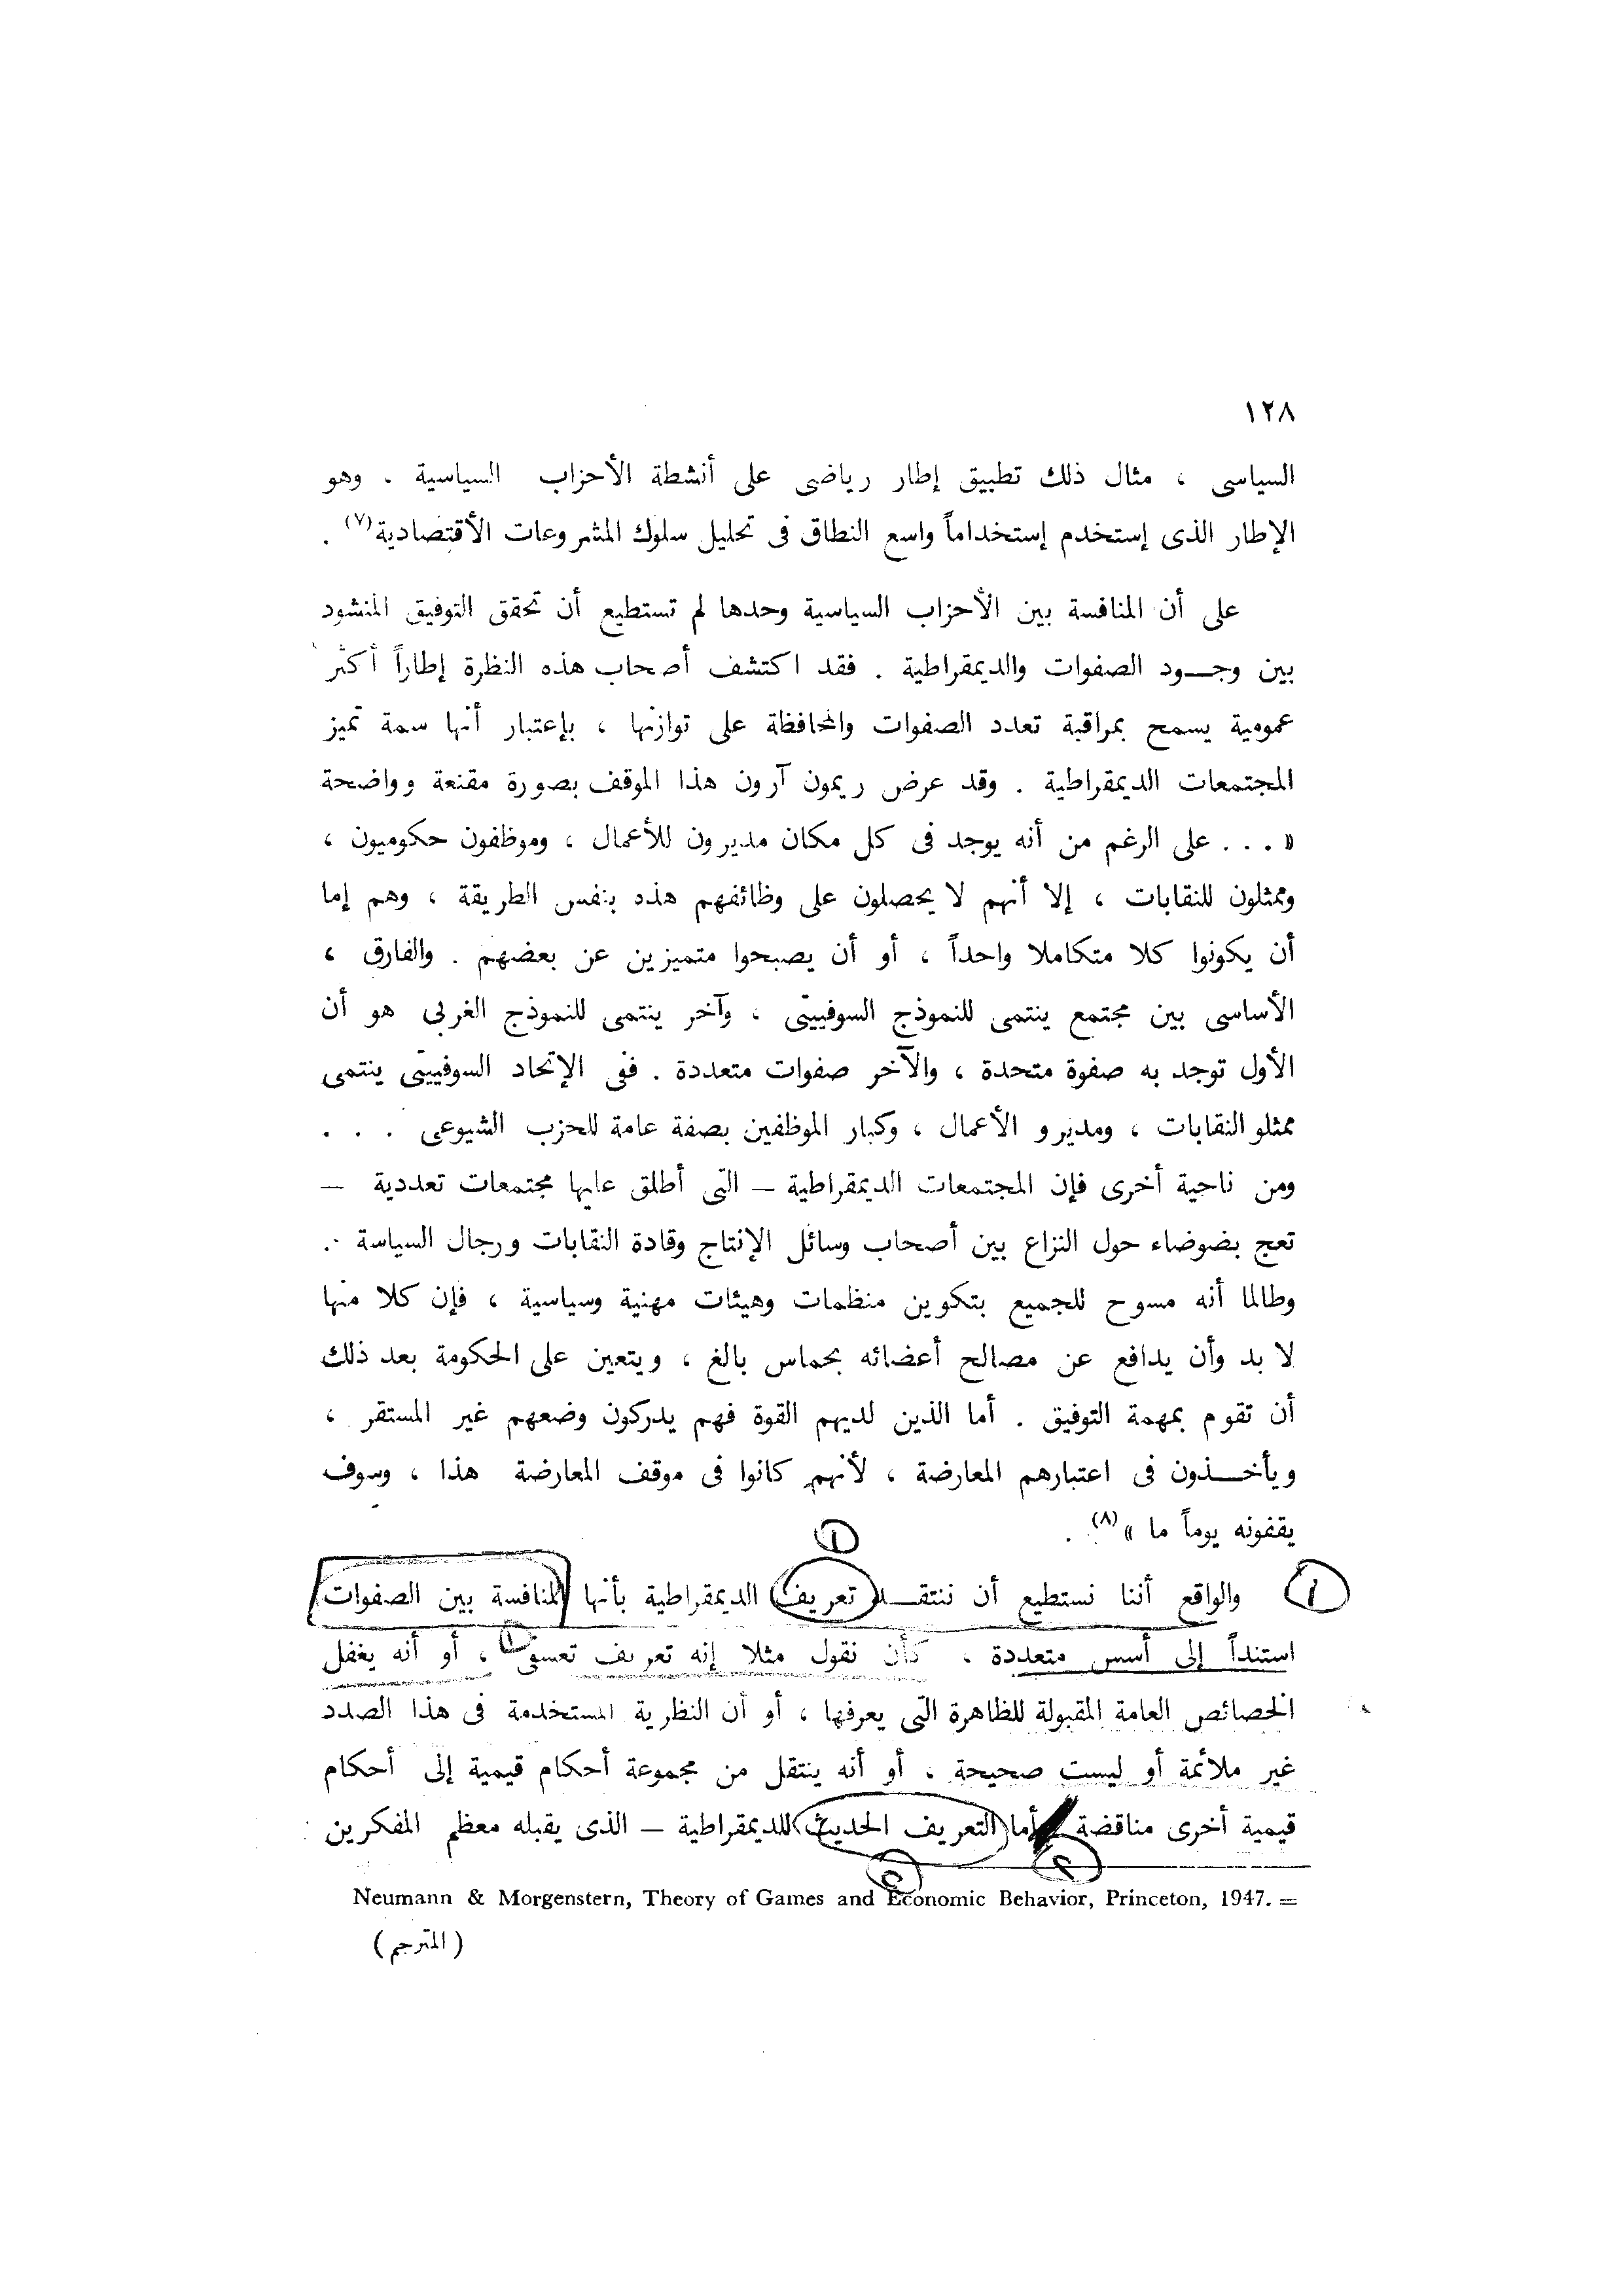 ١٢٨
السياسى ، مثال ذلك تطبيق إطار رياضى على أنشطة الأحزاب السياسية . وهو
الإطار الذى إستخدم إستخداماً واسع النطاق فى تحليل سلوك المشروعات الأقتصادية(٧) .
على أن المنافسة بين الأحزاب السياسية وحدها لم تستطيع أن تحقق التوفيق المنشود
بين وجـــود الصفوات والديمقراطية . فقد اكتشف أصحاب هذه النظرة إطاراً أكثر
عمومية يسمح بمراقبة تعدد الصفوات والمحافظة على توازنها ، بإعتبار أنها سمة تميز
المجتمعات الديمقراطية . وقد عرض ريمون آرون هذا الموقف بصورة مقنعة وواضحة
« . . . على الرغم من أنه يوجد فى كل مكان مديرون للأعمال ، وموظفون حكوميون ،
وممثلون للنقابات ، إلا أنهم لا يحصلون على وظائفهم هذه بنفس الطريقة ، وهم إما
أن يكونوا كلا متكاملا واحداً ، أو أن يصبحوا متميزين عن بعضهم . والفارق ،
الأساسى بين مجتمع ينتمى للنموذج السوفييتى ، وآخر ينتمى للنموذج الغربى هو أن
الأول توجد به صفوة متحدة ، والآخر صفوات متعددة . ففى الإتحاد السوفييتى ينتمى
ممثلو النقابات ، ومديرو الأعمال ، وكبار الموظفين بصفة عامة للحزب الشيوعى . . .
ومن ناحية أخرى فإن المجتمعات الديمقراطية – التى أطلق عليها مجتمعات تعددية –
تعج بضوضاء حول النزاع بين أصحاب وسائل الإنتاج وقادة النقابات ورجال السياسة .
وطالما أنه مسوح للجميع بتكوين منظمات وهيئات مهنية وسياسية ، فإن كلا منها
لا بد وأن يدافع عن مصالح أعضائه بحماس بالغ ، ويتعين على الحكومة بعد ذلك
أن تقوم بمهمة التوفيق . أما الذين لديهم القوة فهم يدركون وضعهم غير المستقر ،
ويأخـــذون فى اعتبارهم المعارضة ، لأنهم كانوا فى موقف المعارضة هذا ، وسوف
يقفونه يوماً ما »(٨) .
والواقع أننا نستطيع أن ننتقـــد تعريف الديمقراطية بأنها المنافسة بين الصفوات
استنداً إلى أسس متعددة ، كأن نقول مثلا إنه تعريف تعسفى ، أو أنه يغفل
الخصائص العامة المقبولة للظاهرة التى يعرفها ، أو أن النظرية المستخدمة فى هذا الصدد
غير ملائمة أو ليست صحيحة ، أو أنه ينتقل من مجموعة أحكام قيمية إلى أحكام
قيمية أخرى مناقضة أما التعريف الحديث للديمقراطية – الذى يقبله معظم المفكرين
Neumann & Morgenstern, Theory of Games and Economic Behavior, Princeton, 1947. =
( المترجم )